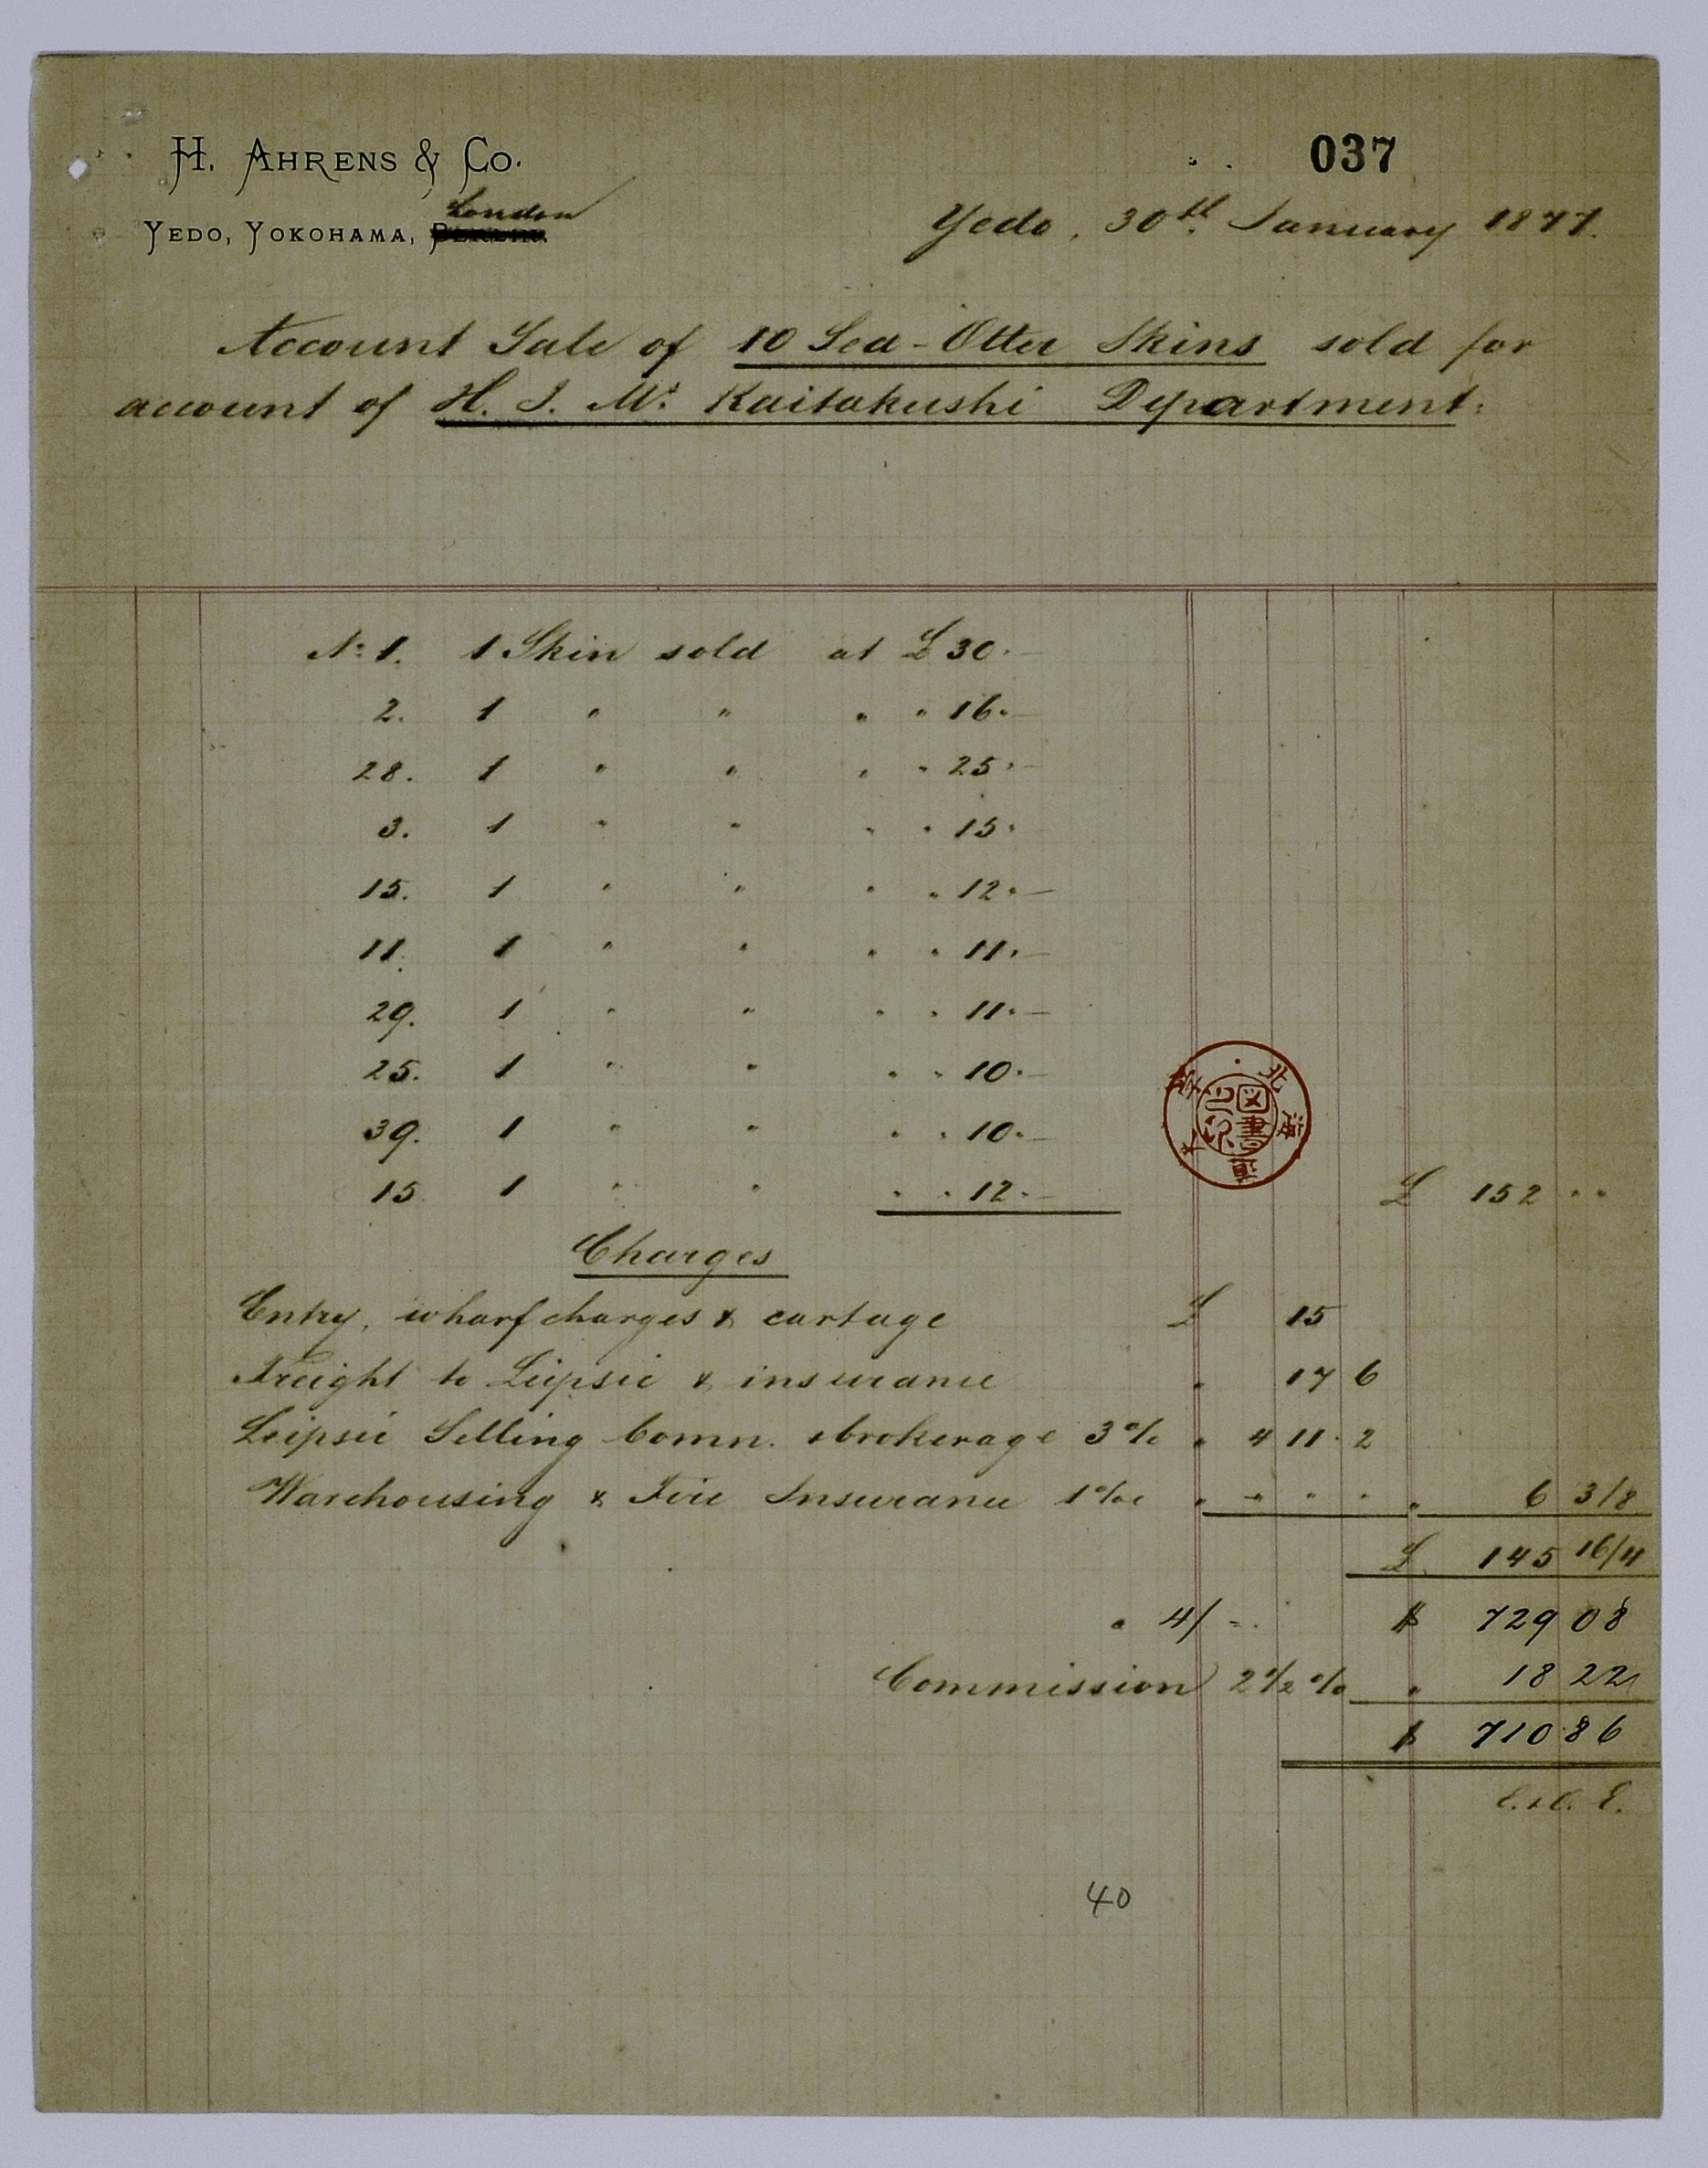 037
H. AHRENS & Co.
London
YEDO, YOKOHAMA, BERLIN.
Yedo, 30th January 1877.
Account Sale of 10 Sea-Otter Skins sold for
account of H. I. M's Kaitakushi Department:
No 1. 1 Skin sold at £ 30.-
2. 1 " " " " 16.-
28. 1 " " " " 25.-
3. 1 " " " " 15.-
15. 1 " " " " 12.-
11. 1 " " " " 11.-
29. 1 " " " " 11.-
25. 1 " " " " 10.-
39. 1 " " " " 10.-
15 1 " " " " 12.- £ 152 " "
Charges
Entry, wharfcharges & cartage £ 15
Freight to Leipsic & insurance " 17 6
Leipsic Selling Comn. & brokerage 3% " 4 11 2
Warehousing & Fire Insurance 1‰ " " " " " 6 3/8
£ 145 16/4
" 4/- $ 729 08
Commission 2½% " 18 22
$ 710 86
E. & O. E.
北海道大学
図書
40